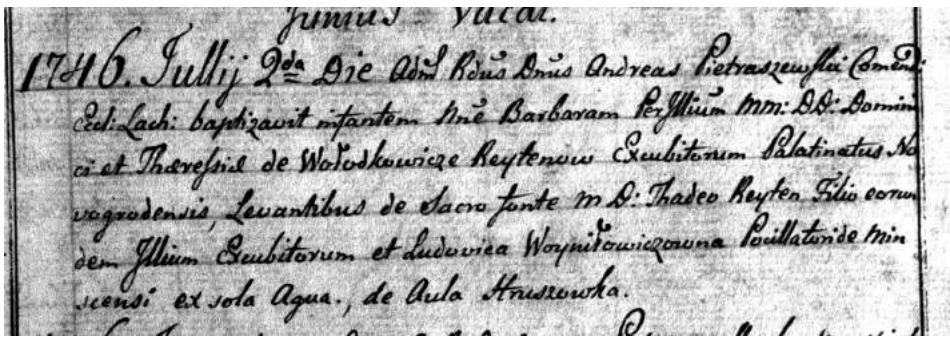 Junius Vacat.
1746. Jullij 2da Die Adm Rdus Dnus Andreas Pietraszewski Comend:
Eccl: Lach: baptizavit infantem Nne Barbaram PerJllium MM: DD: Domini
ci et Thæressiæ de Wołodkowicze Reytenow Excubitorum Palatinatus No
vogrodensis, Levantibus de Sacro fonte M D: Thadeo Reyten Filio eorun
dem Jllium Excubitorum et Ludovica Woyniłowiczowna Pocillatoride Min
scensi ex sola Aqua., de Aula Hruszowka.